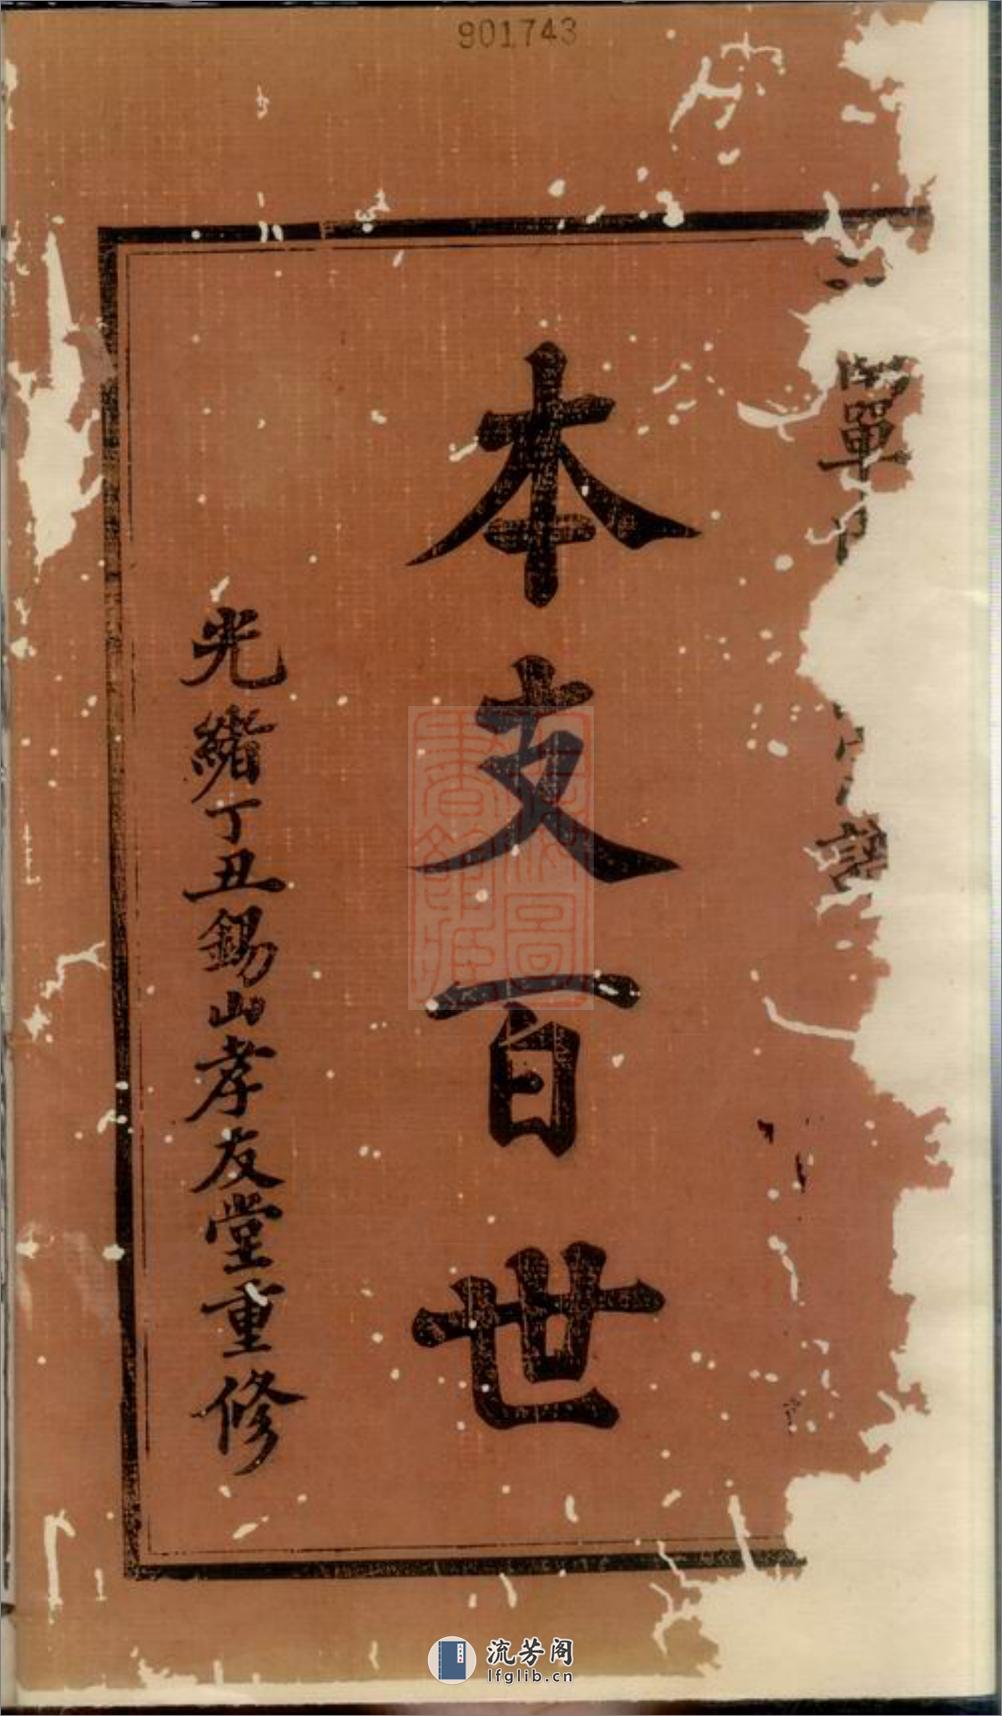 901743
單
譜
本支百世
光緒丁丑錫山孝友堂重修
流芳阁
lfglib.cn